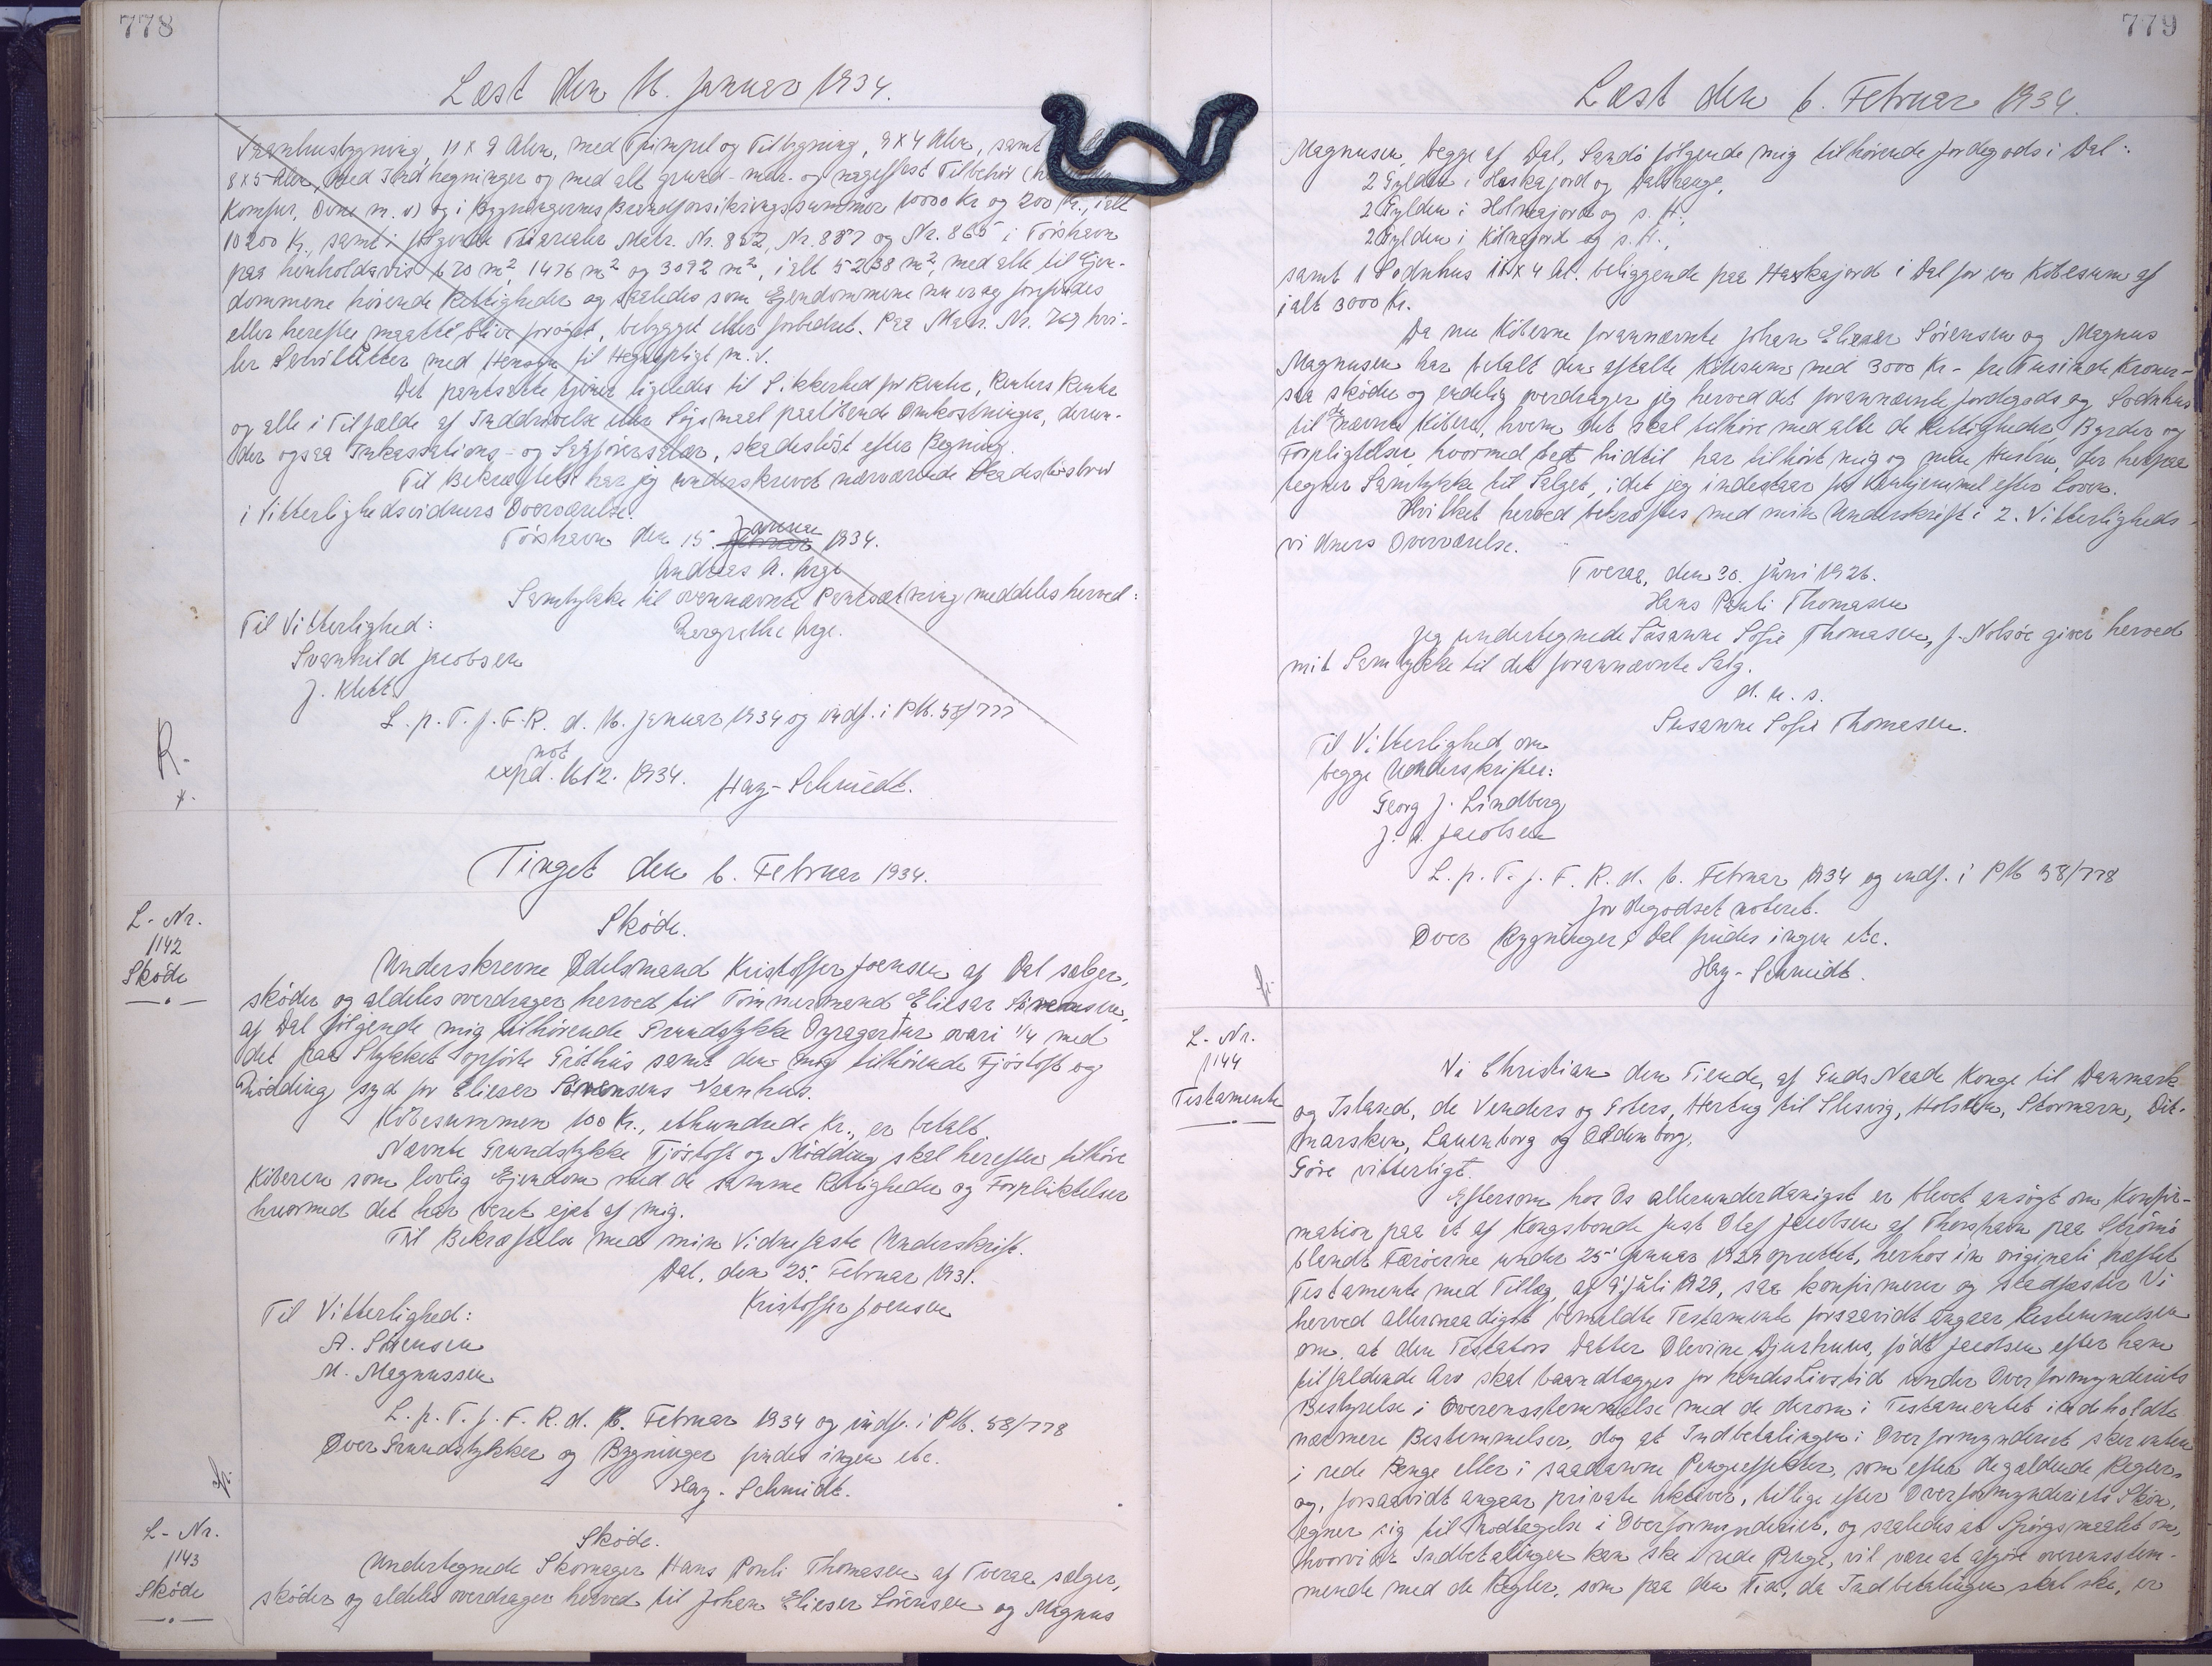 778
Læst den 16. Januar 1934.
Vaanhusbygning, 11 x 9 Alen, med Trimpel og Tilbygning, 9 x 4 Alen, samt
8 x 5 Alen, med Indhegninger og med alt grund- mur- og nagelfast Tilbehör
Komfur, Ovne m. v) og i Bygningernes Brandforsikringssummer 10000 Kr og 200 Kr., ialt
10200 Kr., samt i følgende Matr. Nr. 852, Nr. 857 og Nr. 865 i Tórshavn
paa henholdsvis 670 m², 1476 m² og 3092 m², ialt 5238 m², med alle til Ejen-
dommene hörende Rettigheder og saaledes som Ejendommene nu er og forefindes
eller herefter maatte blive forøget, bebygget eller forbedret. Paa Matr. Nr. 769 hvi-
ler Servitutter med Hensyn til Hegnspligt m. v.
Det pantsatte tjener ligeledes til Sikkerhed for Renter, Renters Rente
og alle i Tilfælde af Inddrivelse eller Sögsmaal paalöbende Omkostninger, derun-
der ogsaa Inkassations- og Sagförersalær, skadeslöst efter Regning.
Til Bekræftelse har jeg underskrevet nærværende Skadeslösbrev
i Vitterlighedsvidners Overværelse.
Tórshavn den 15. Januar 1934.
Andreas A. Arge
Samtykke til ovennævnte Pantsætning meddeles herved:
Til Vitterlighed:
Bergrethe Arge.
Svanhild Jacobsen
J. Klett
L. p. T. f. F. R. d. 16. Januar 1934 og indf. i PM. 58/777
R.
not
expd. 16/2. 1934. Hay-Schmidt.
Tinget den 6. Februar 1934.
L-Nr.
1142
Sköde
Sköde.
Underskrevne Odelsmand Kristoffer Joensen af Dal sælger,
sköder og aldeles overdrager herved til Tömmermand Eliesar Sörensen,
af Dal fölgende mig tilhörende Grundstykke 1/4 med
det paa Stykket opförte Gróthús samt den mig tilhörende Fjóstoft og
Mödding syd for Elieser Sörensens Vaanhus.
Köbesummen 100 Kr., ethundrede Kr., er betalt
Nævnte Grundstykke Fjóstoft og Mödding skal herefter tilhöre
Köberen som lovlig Ejendom med de samme Rettigheder og Forpliktelser
hvormed det har været ejet af mig.
Til Bekræftelse med min Vidnefaste Underskrift.
Dal, den 25. Februar 1931.
Kristoffer Joensen
Til Vitterlighed:
A. Sörensen
M. Magnussen
L. p. T. f. F. R. d. 6. Februar 1934 og indf. i PM. 58/778
Over Grundstykker og Bygninger findes ingen etc.
Hay-Schmidt.
L-Nr.
1143
Sköde
Sköde.
Undertegnede Skomager Hans Pauli Thomasen af Tveraa sælger,
sköder og aldeles overdrager herved til Johan Elieser Sörensen og Magnus
779
Læst den 6. Februar 1934.
Magnusen, begge af Dal, Sandö fölgende mig tilhörende Jordegods i Dal:
2 Gylden i Haskajord og Dalshauge,
2 Gylden i Holmajord og s. H.,
2 Gylden i Kólnajord og s. H.,
samt 1 Sodnhus 11 x 4 Al. beliggende paa Haskajord i Dal for en Köbesum af
ialt 3000 Kr.
Da nu Köberne forannævnte Johan Elieser Sörensen og Magnus
Magnusen har betalt den aftalte Köbesum med 3000 Kr - tre Tusinde Kroner-
saa sköder og endelig overdrager jeg herved det forannævnte Jordegods og Sodnhus
til de nævnte Köbere, hvem det skal tilhöre med alle de Rettigheder, Byrder og
Forpligtelser, hvormed det hidtil har tilhört mig og min Hustru, der herpaa
tegner Samtykke til Salget, idet jeg indestaar for Vanhjemmel efter Loven.
Hvilket herved bekræftes med min Underskrift i 2. Vitterligheds-
vidners Overværelse.
Tveraa, den 30. Júni 1926.
Hans Pauli Thomasen
Jeg undertegnede Súsanne Sofie Thomasen, f. Nolsöe giver herved
mit Samtykke til det forannævnte Salg.
d. u. s.
Susanne Sofie Thomasen.
Til Vitterlighed om
begge Underskrifter:
Georg J. Lindberg
J. A. Jacobsen
L. p. T. f. F. R. d. 6. Februar 1934 og indf. i PM 58/778
Jordegodset noteret.
Over Bygninger i Dal findes ingen etc.
Hay-Schmidt.
L-Nr.
1144
Testamente
Vi Christian den Tiende, af Guds Naade Konge til Danmark
og Island, de Venders og Goters, Hertug til Slesvig, Holsten, Stormarn, Dit-
marsken, Lauenborg og Oldenborg,
Göre vitterligt.
Eftersom hos Os allerunderdanigst er blevet ansögt om Konfir-
mation paa et af Kongsbonde Just Olaf Jacobsen af Thorshavn paa Strömö
blandt Færöerne under 25' Januar 1929 oprettet, herhos in originali hæftet
Testamente med Tillæg af 9' Júli 1929, saa konfirmerer og stadfæster Vi
herved allernaadigst bemeldte Testamente forsaavidt angaar Bestemmelsen
om, at den Testators Datter Olevine Djurhuus, födt Jacobsen efter ham
tilfaldende Arv skal baandlægges for hendes Livstid under Overformynderiets
Bestyrelse i Overensstemmelse med de derom i Testamentet indeholdte
nærmere Bestemmelser, dog at Indbetalingen i Overformynderiet sker enten
i rede Penge eller i saadanne Pengeeffekter, som efter de gældende Regler,
og, forsaavidt angaar private Aktiver, tillige efter Overformynderiets Skön,
egner sig til Modtagelse i Overformynderiet, og saaledes at Spörgsmaalet om,
hvorvidt Indbetalingen kan ske i rede Penge, vil være at afgöre overensstem-
mende med de Regler, som paa den Tid, da Indbetalingen skal ske, er